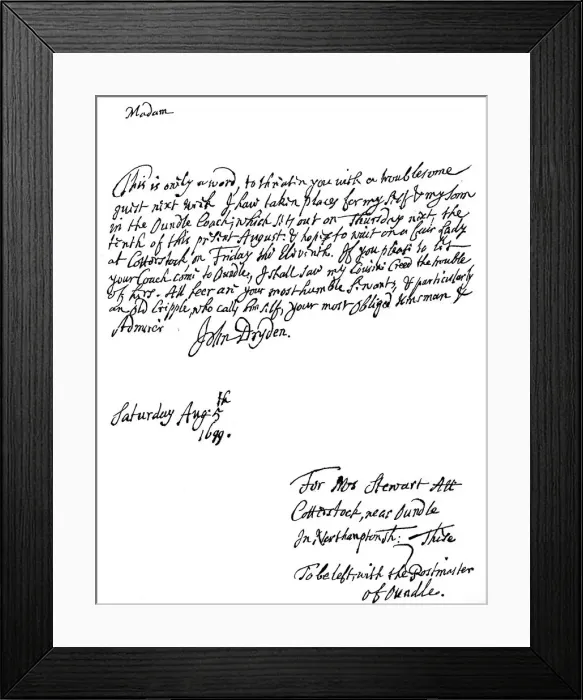 Madam
This is only a word, to threaten you with a troublesome
guest next week I have taken places for my self & my sonn
in the Oundle Coach, which sets out on Thursday next, the
tenth of this present August: & hope to wait on a fair Lady
at Cotterstock on Friday the Eleventh. If you please to let
your Coach come to Oundle, I shall save my Cousin Creed the trouble
of hers. All heer are your most humble Servants, & particularly
an old Cripple, who calls him self, your most Obliged Kinsman &
Admirer
John Dryden.
Saturday Aug: 5th
1699.
For Mrs Stewart Att
Cotterstock, near Oundle
In Northamptonsh: These
To be left with the Postmaster
of Oundle.